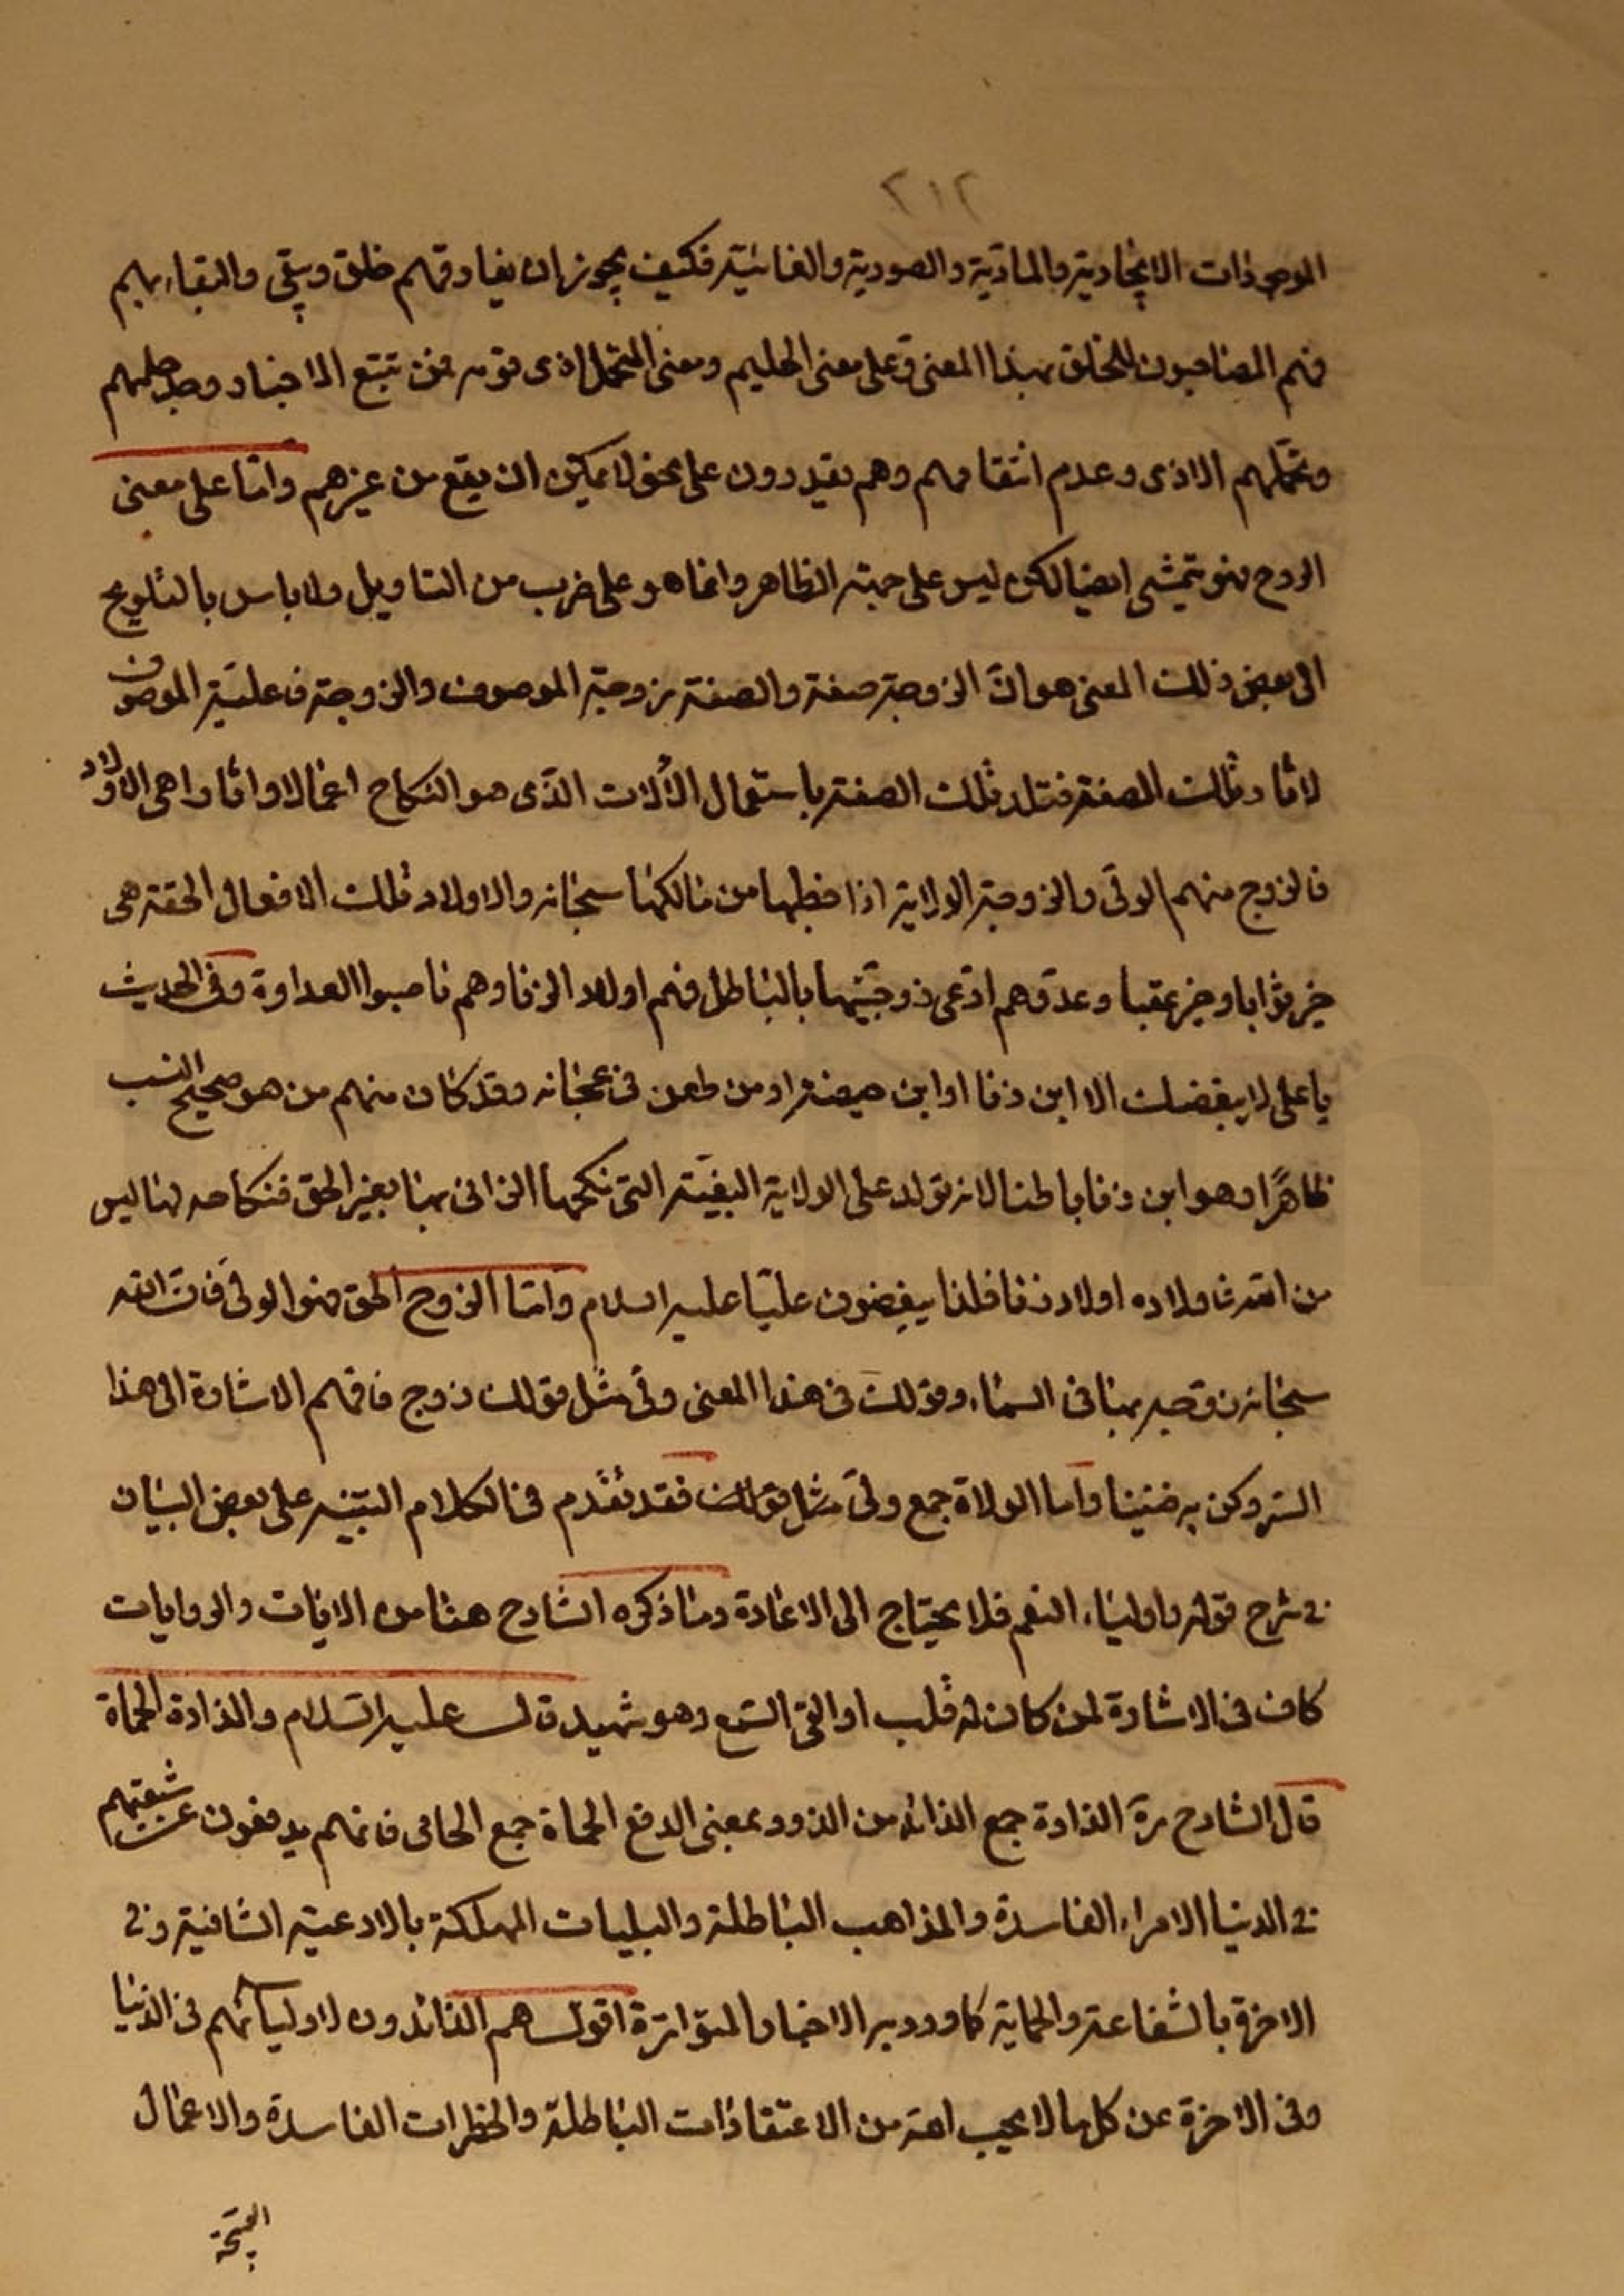 ٢١٢
الموجودات الايجادية والمادّية والصورية والغائيّة فكيف يجوز ان يفارقهم خلق ويبقى والبقاء بهم
فهم المصاحبون للخلق بهذا المعنى وعلى معنى الحليم ومعنى المتحمل اذى قومه فمن تتبع الاخبار وجد حلمهم
وتحمّلهم الاذى وعدم انتقامهم وهم يقدرون على نحو لا يمكن ان يقع من غيرهم وامّا على معنى
الزوج فهو يتمشى ايضا لكن ليس على جهة الظاهر وانما هو على ضرب من التاويل ولا باس بالتلويح
الى بعض ذلك المعنى هو انّ الزوجة صفة والصفة زوجة الموصوف والزوجة فاعليّة الموصوف
لاثار تلك الصفة فتلد تلك الصفة باستعمال الآلات الذّى هو النكاح اعمالا واثارا هى الاولاد
فالزوج منهم الولىّ والزوجة الولاية اذا خطبها من مالكها سبحانه والاولاد تلك الافعال الحقة هى
خير ثوابا وخير عقبا وعدوّهم ادّعى زوجيّتها بالباطل فهم اولاد الزنا وهم ناصبوا العداوة وفى الحديث
يا على لا يبغضك الا ابن زنا او ابن حيضة او من طعن فى عجانه وقد كان منهم من هو صحيح النسب
ظاهرًا وهو ابن زنا باطنا لانه تولد على الولاية البغيّة التى نكحها الزانى بها بغير الحق فنكاحه لها ليس
من الله فاولاده اولاد زنا فلذا يبغضون عليّا عليه السلام وامّا الزوج الحق فهو الولىّ فانّ الله
سبحانه زوّجه بها فى السماء وقولك فى هذا المعنى ولىّ مثل قولك زوج فافهم الاشارة الى هذا
السّر وكن به ضنينا وامّا الولاة جمع ولىّ مثل قولك فقد تقدّم فى الكلام التنبيه على بعض البيان
فى شرح قوله واولياء النعم فلا يحتاج الى الاعادة وما ذكره الشارح هنا من الايات والروايات
كاف فى الاشارة لمن كان له قلب او القى السّمع وهو شهيد قال عليه السّلام والذادة الحماة
قال الشارح ره الذادة جمع الذائد من الذود بمعنى الدفع الحماة جمع الحامى فانهم يدفعون عن شيعتهم
فى الدنيا الاراء الفاسدة والمذاهب الباطلة والبليات المهلكة بالادعية الشافية وفى
الاخرة بالشفاعة والحماية كما ورد به الاخبار المتواترة اقول هم الذائدون لاوليائهم فى الدنيا
وفى الاخرة عن كل ما لا يحب الله من الاعتقادات الباطلة والخطرات الفاسدة والاعمال